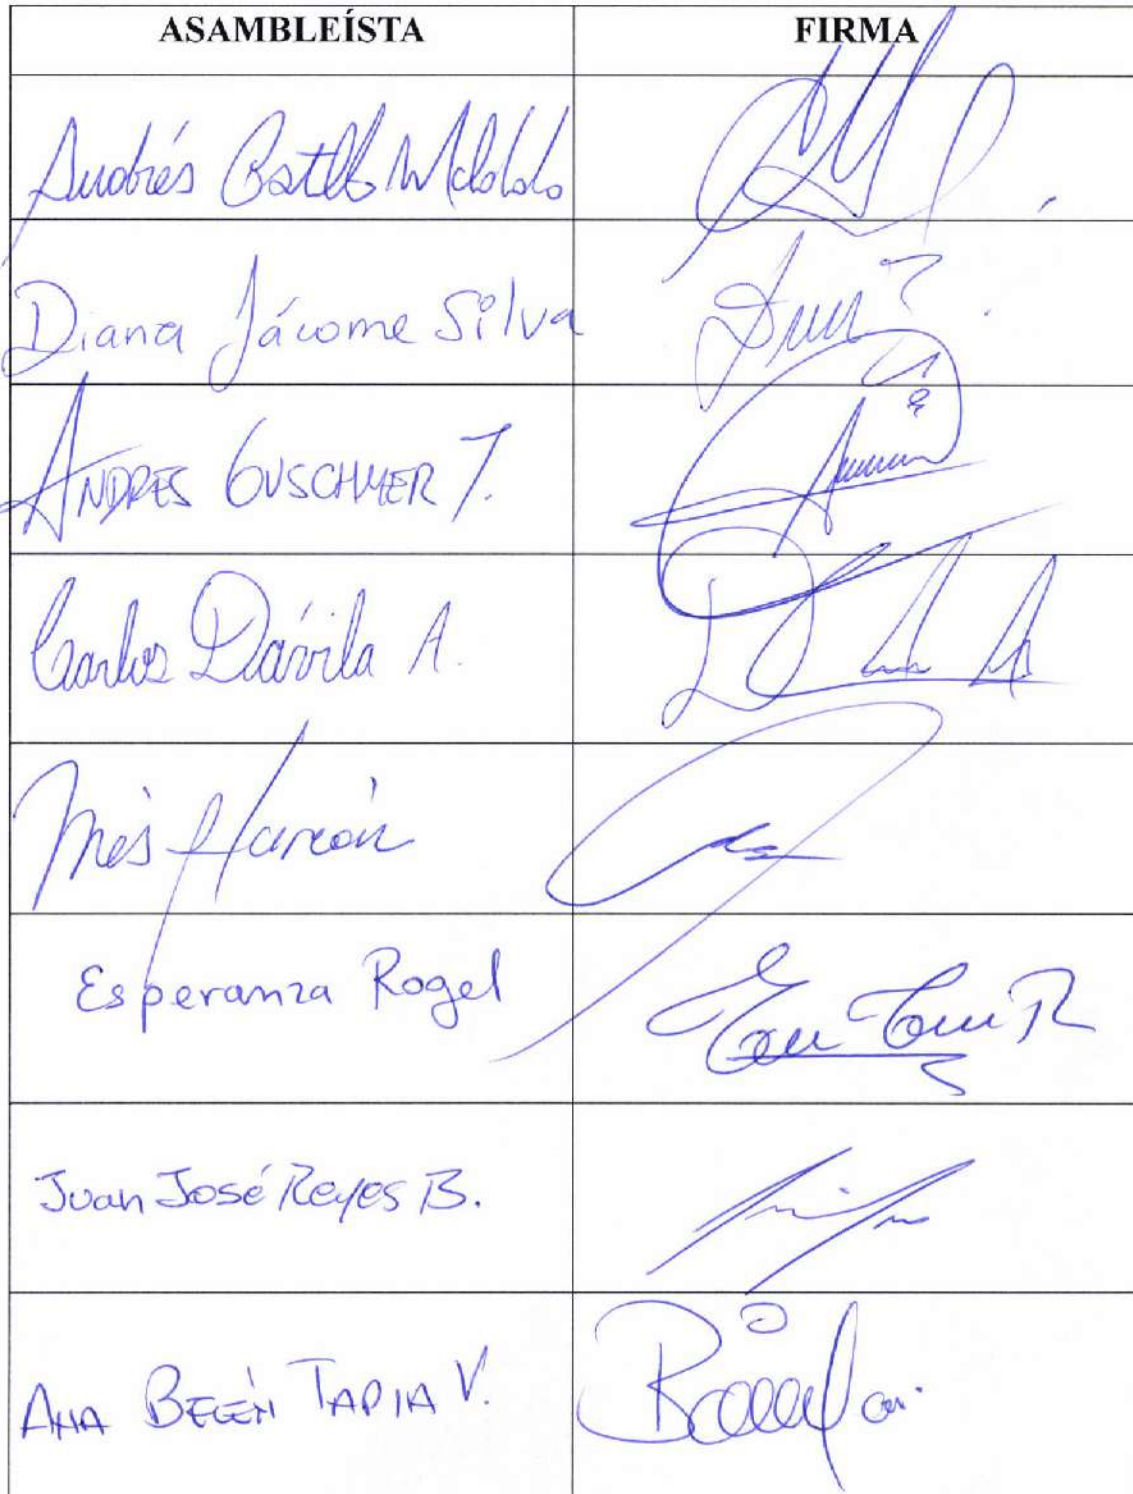 ASAMBLEÍSTA FIRMA
Andrés Castillo Maldonado
Diana Jácome Silva
ANDRES GUSCHMER T.
Carlos Dávila A.
Inés Alarcón
Esperanza Rogel
Juan José Reyes B.
ANA BELÉN TAPIA V.